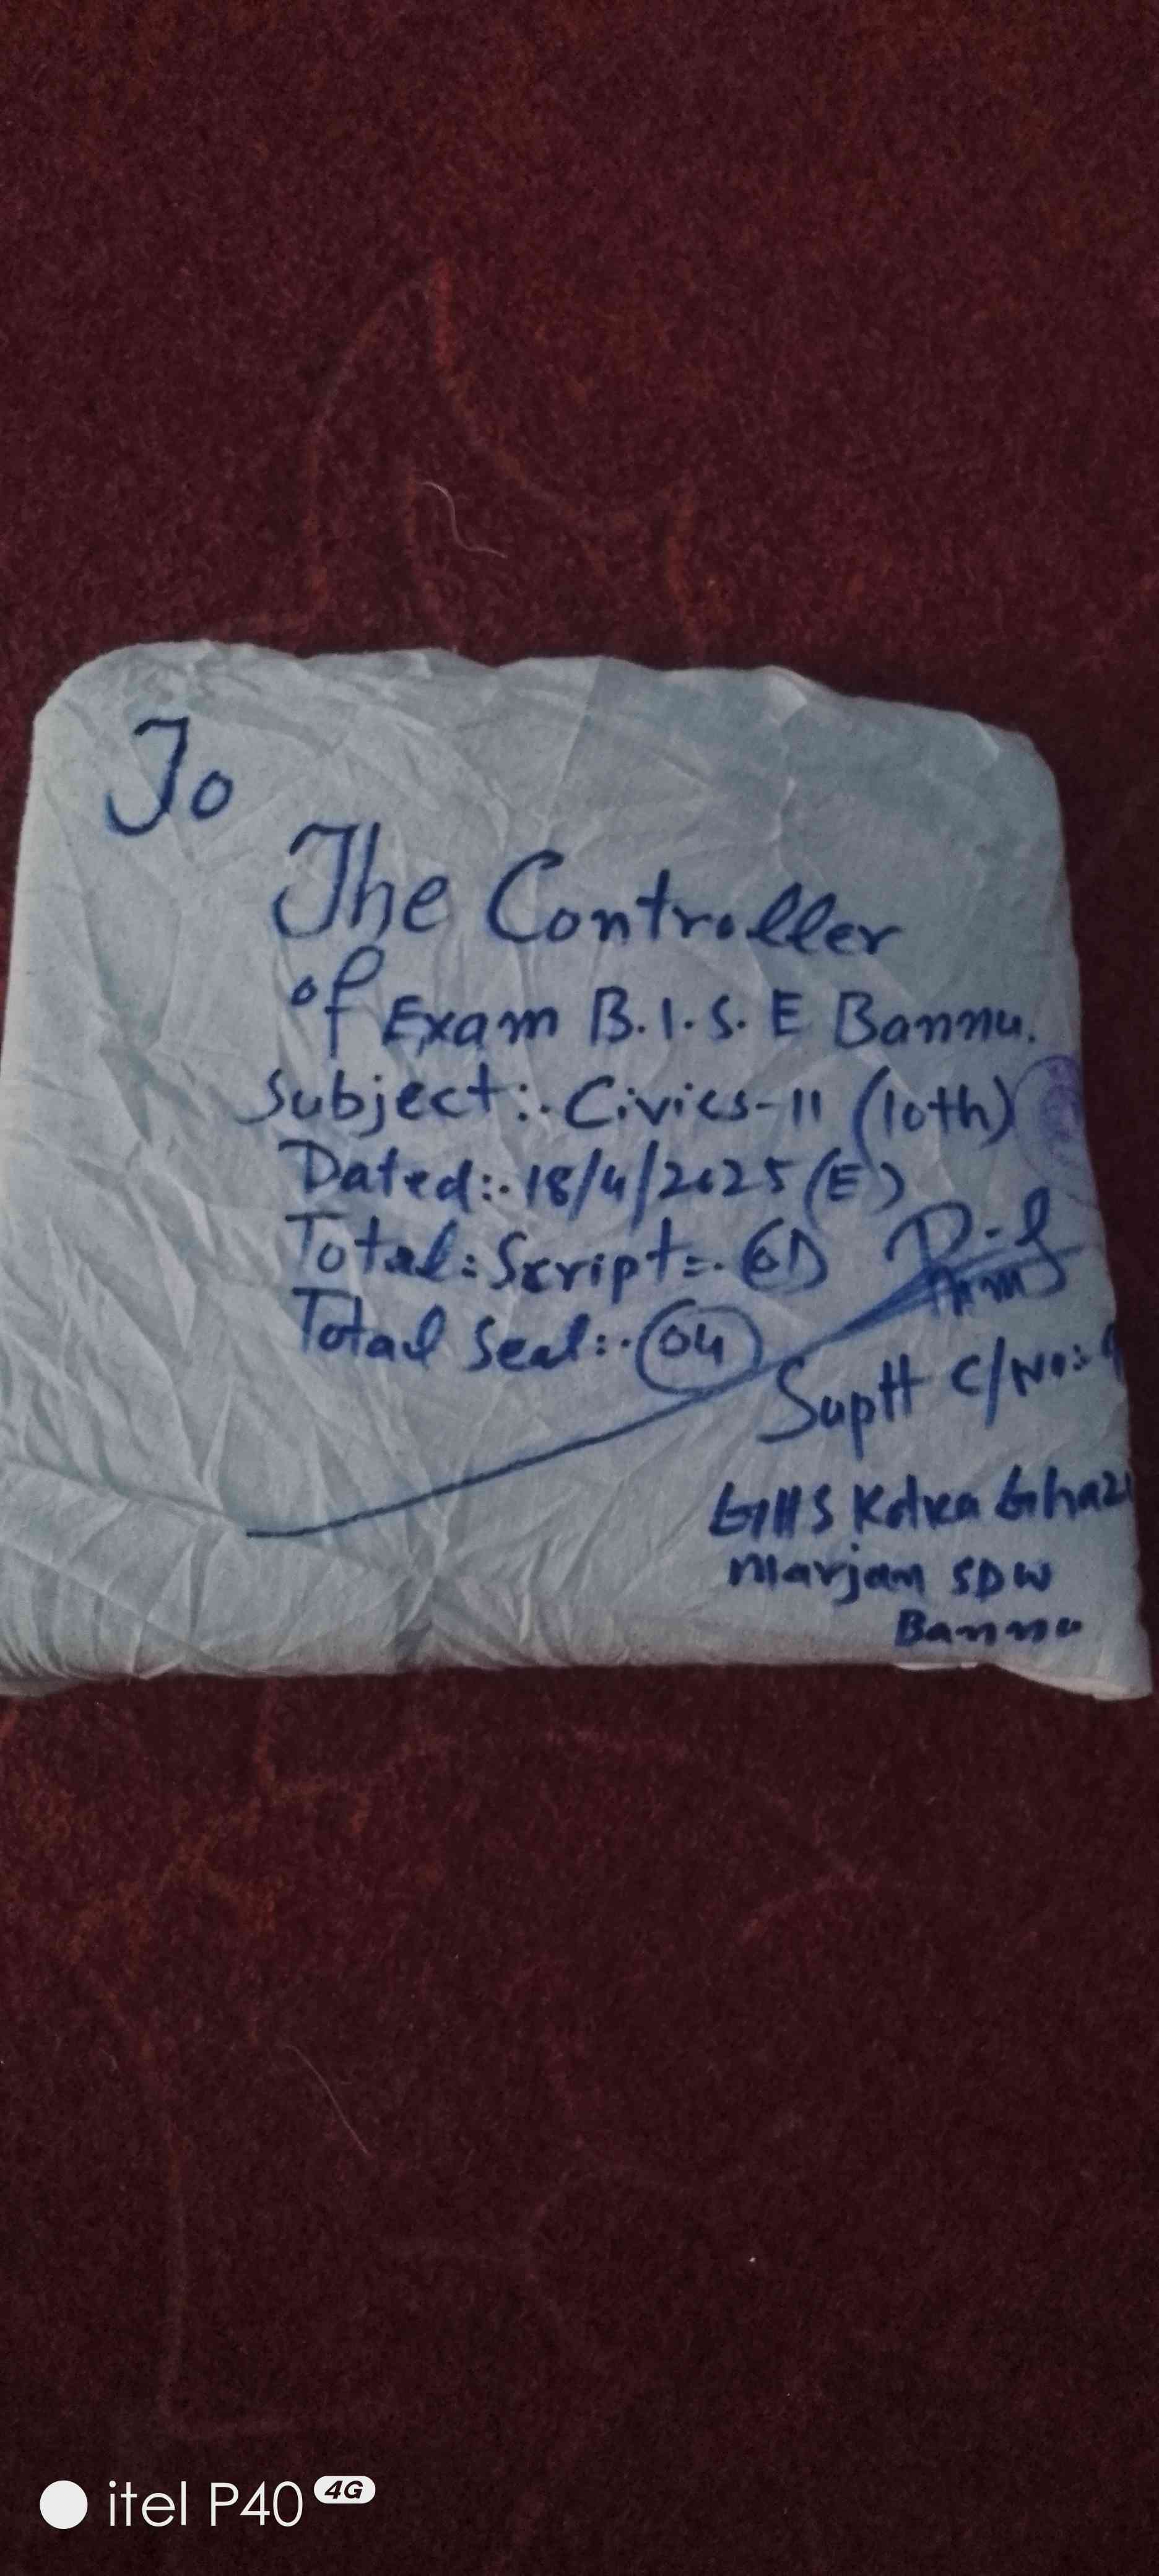 To
The Controller
of Exam B.I.S.E Bannu.
Subject:. Civics-II (10th)
Dated:. 18/4/2025 (E)
Total: Script:-.
Total Seal:. 04
Suptt C/No:
GHS Kotka Ghazi
Marjan SDW
Bannu
itel P40 4G